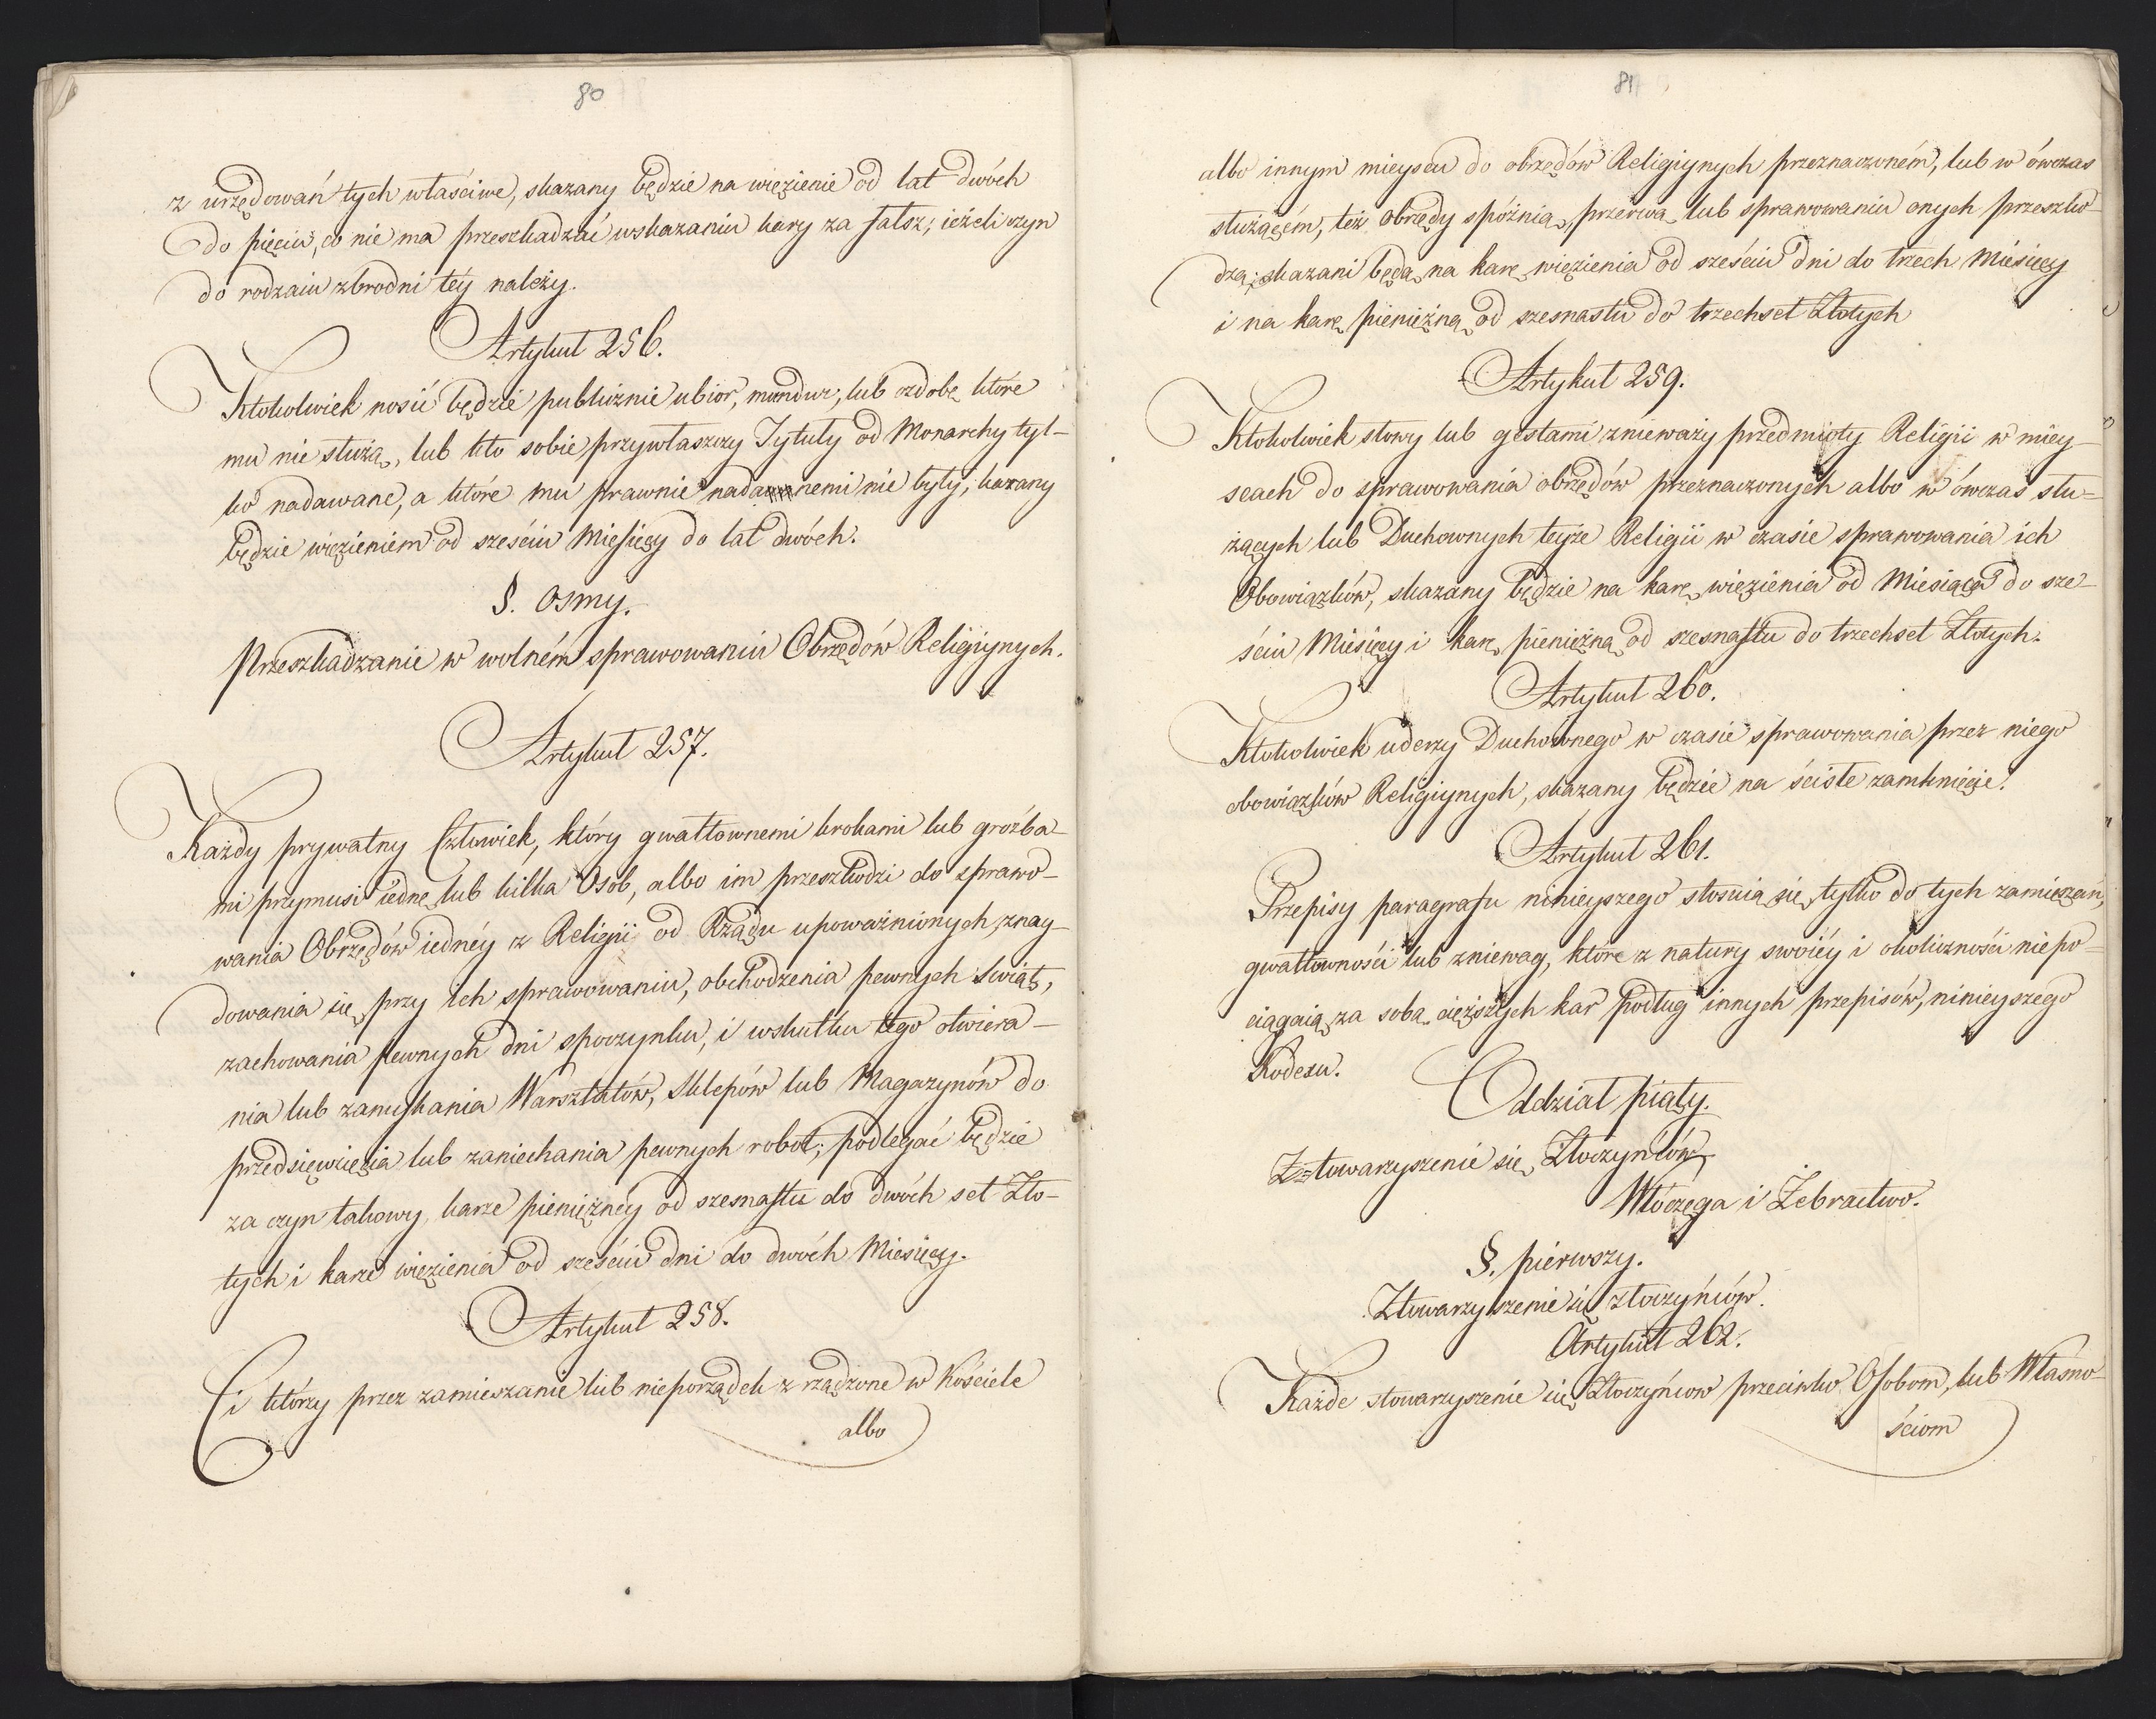 80
z urzędowań tych właściwe, skazany będzie na więzienie od lat dwóch
do pięciu, co nie ma przeszkadzać wskazaniu kary za fałsz, ieżeli czyn
do rodzaiu zbrodni téy należy.
Artykuł 256.
Ktokolwiek nosić będzie publicznie ubior, mundur, lub ozdobę które
mu nie służą, lub kto sobie przywłaszczy Tytuły od Monarchy tyl-
ko nadawane, a które mu prawnie nadanemi nie były, karany
będzie więzieniem od sześciu Miesięcy do lat dwóch.
§. Osmy.
Przeszkadzanie w wolném sprawowaniu Obrzędów Religiynych.
Artykuł 257.
Każdy prywatny Człowiek, który gwałtownemi krokami lub groźba-
mi przymusi iednę lub kilka Osob, albo im przeszkodzi do sprawo-
wania Obrzędów iednéy z Religii od Rządu upoważnionych, znay-
dowania się przy ich sprawowaniu, obchodzenia pewnych Swiąt,
zachowania pewnych dni spoczynku, i wskutku tego otwiera-
nia lub zamykania Warsztatów, Sklepów lub Magazynów do
przedsięwzięcia lub zaniechania pewnych robot; podlegać będzie
za czyn takowy karze pieniężnéy od szesnastu do dwóch set Zło-
tych i karze więzienia od sześciu dni do dwóch Miesięcy.
Artykuł 258.
Ci którzy przez zamieszanie lub nieporządek zrządzone w Kościele
albo
81
albo innym mieyscu do obrzędów Religiynych przeznaczoném, lub w ówczas
służącém, też Obrzędy spóźnią, przerwą lub sprawowaniu onych przeszko-
dzą; skazani będą na karę więzienia od sześciu dni do trzech Miesięcy
i na karę pieniężną od szesnastu do trzechset Złotych
Artykuł 259.
Ktokolwiek słowy lub gestami znieważy przedmioty Religii w miey-
scach do sprawowania obrzędów przeznaczonych albo w ówczas słu-
żących lub Duchownych teyże Religii w czasie sprawowania ich
Obowiązków, skazany będzie na karę więzienia od Miesiąca do sze-
ściu Miesięcy i karę pieniężną od szesnastu do trzechset Złotych.
Artykuł 260.
Ktokolwiek uderzy Duchownego w czasie sprawowania przez niego
obowiązków Religiynych, skazany będzie na ścisłe zamknięcie.
Artykuł 261.
Przepisy paragrafu ninieyszego stosuią się tylko do tych zamieszań,
gwałtowności lub zniewag, które z natury swoiéy i okoliczności niepo-
ciągaią za sobą cięższych kar podług innych przepisów, ninieyszego
Kodexu.
Oddział piąty.
Ztowarzyszenie się Złoczyńców,
Włóczęga i Żebractwo.
§. pierwszy.
Ztowarzyszenie się złoczyńców.
Artykuł 262.
Każde stowarzyszenie się Złoczyńcow przeciwko Osobom, lub Własno-
ściom